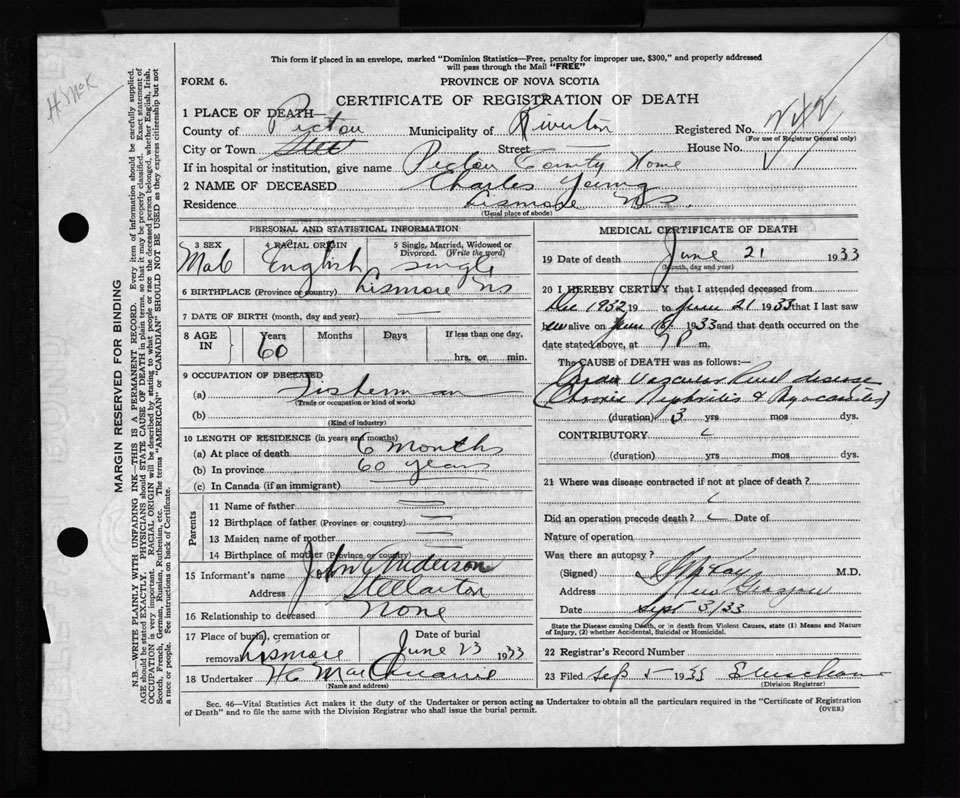 This form if placed in an envelope, marked "Dominion Statistics—Free, penalty for improper use, $300," and properly addressed
will pass through the Mail "FREE"
FORM 6.
PROVINCE OF NOVA SCOTIA
CERTIFICATE OF REGISTRATION OF DEATH
H McK
MARGIN RESERVED FOR BINDING
N.B.—WRITE PLAINLY WITH UNFADING INK—THIS IS A PERMANENT RECORD. Every item of information should be carefully supplied.
AGE should be stated EXACTLY. PHYSICIANS should STATE CAUSE OF DEATH in plain terms, so that it may be properly classified. Exact statement of
OCCUPATION is very important. RACIAL ORIGIN will be described by stating to what people or race the deceased person belonged, whether English, Irish,
Scotch, French, German, Russian, Ruthenian, etc. The terms "AMERICAN" or "CANADIAN" SHOULD NOT BE USED as they express citizenship but not
a race or people. See instructions on back of Certificate.
1 PLACE OF DEATH—
County of Pictou Municipality of Riverton Registered No.
(For use of Registrar General only)
City or Town Street House No.
If in hospital or institution, give name Pictou County Home
2 NAME OF DECEASED Charles Young
Residence Lismore NS.
(Usual place of abode)
PERSONAL AND STATISTICAL INFORMATION
3 SEX 4 RACIAL ORIGIN 5 Single, Married, Widowed or Divorced. (Write the word)
Male English single
6 BIRTHPLACE (Province or country) Lismore NS
7 DATE OF BIRTH (month, day and year)
8 AGE IN Years Months Days If less than one day,
60 hrs. or min.
9 OCCUPATION OF DECEASED
(a) Fisherman
(Trade or occupation or kind of work)
(b)
(Kind of industry)
10 LENGTH OF RESIDENCE (in years and months)
(a) At place of death 6 months
(b) In province 60 years
(c) In Canada (if an immigrant)
Parents
11 Name of father
12 Birthplace of father (Province or country)
13 Maiden name of mother
14 Birthplace of mother (Province or country)
15 Informant's name John Anderson
Address Stellarton
16 Relationship to deceased None
17 Place of burial, cremation or removal Lismore Date of burial June 23 1933
18 Undertaker
(Name and address)
MEDICAL CERTIFICATE OF DEATH
19 Date of death June 21 1933
(Month, day and year)
20 I HEREBY CERTIFY that I attended deceased from
Dec 1932 19 to June 21 1933 that I last saw
him alive on June 1933 and that death occurred on
date stated above, at m.
The CAUSE OF DEATH was as follows:—
Cardio Vascular Renal disease
(Chronic Nephritis & Myocarditis)
(duration) 3 yrs mos dys.
CONTRIBUTORY
(duration) yrs mos dys.
21 Where was disease contracted if not at place of death?
Did an operation precede death? Date of
Nature of operation
Was there an autopsy?
(Signed) M.D.
Address New Glasgow
Date Sept 3/33
State the Disease causing Death, or in death from Violent Causes, state (1) Means and Nature
of Injury, (2) whether Accidental, Suicidal or Homicidal.
22 Registrar's Record Number
23 Filed Sep 5 1933
(Division Registrar)
Sec. 46—Vital Statistics Act makes it the duty of the Undertaker or person acting as Undertaker to obtain all the particulars required in the "Certificate of Registration
of Death" and to file the same with the Division Registrar who shall issue the burial permit. (OVER)